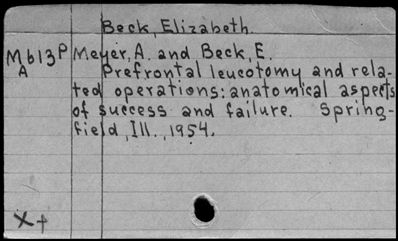 Beck, Elizabeth.
M613P Meyer, A. and Beck, E.
A Prefrontal leucotomy and rela-
ted operations: anatomical aspects
of success and failure. Spring-
field, Ill., 1954.
X+